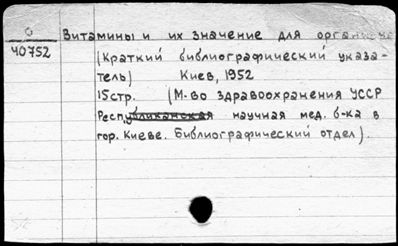 О
40752
Витамины и их значение для организма
(Краткий библиографический указа-
тель) Киев, 1952
15 стр. (М-во здравоохранения УССР
Республиканская научная мед. б-ка в
гор. Киеве. Библиографический отдел).